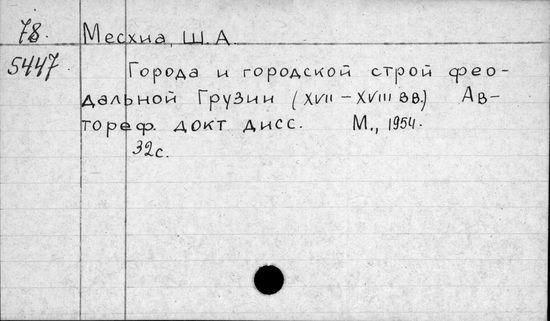 78. Месхиа, Ш.А.
5447. Города и городской строй фео-
дальной Грузии (XVII-XVIII вв.) Ав-
тореф. докт дисс. М., 1954.
32с.